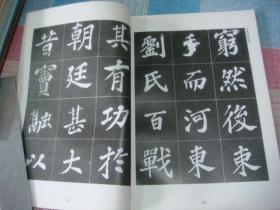 窮然後束
手而河東
劉氏百戰
其有功於
朝廷甚大
昔竇融以